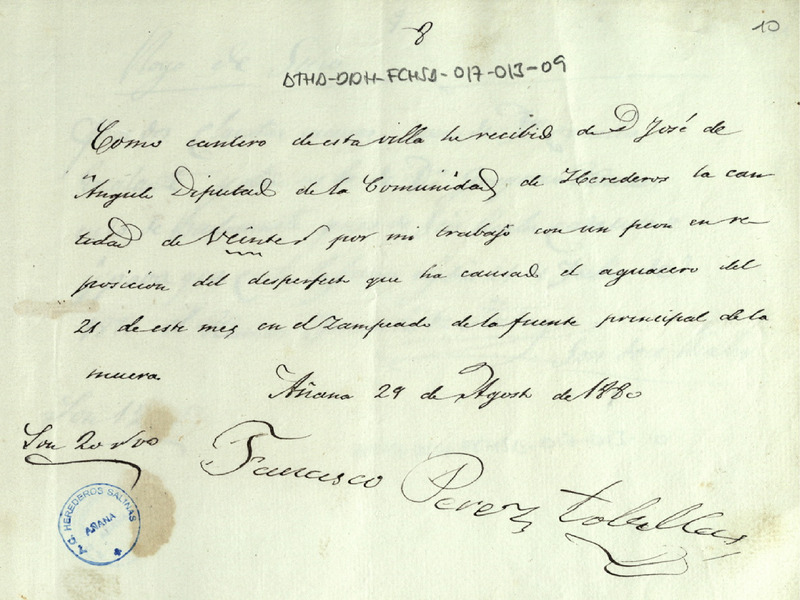 8
10
ATHA-DDH-FCHSA-017-013-09
Como cantero de esta villa he recibido de D José de
Angulo Diputado de la Comunidad de Herederos la can
tidad de Veinte rs por mi trabajo con un peon en re
posicion del desperfecto que ha causado el aguacero del
21 de este mes en el Zampeado de la fuente principal de la
muera.
Añana 29 de Agosto de 1880
Son 20 rs vo
Francisco Perez
G. HEREDEROS SALINAS
AÑANA